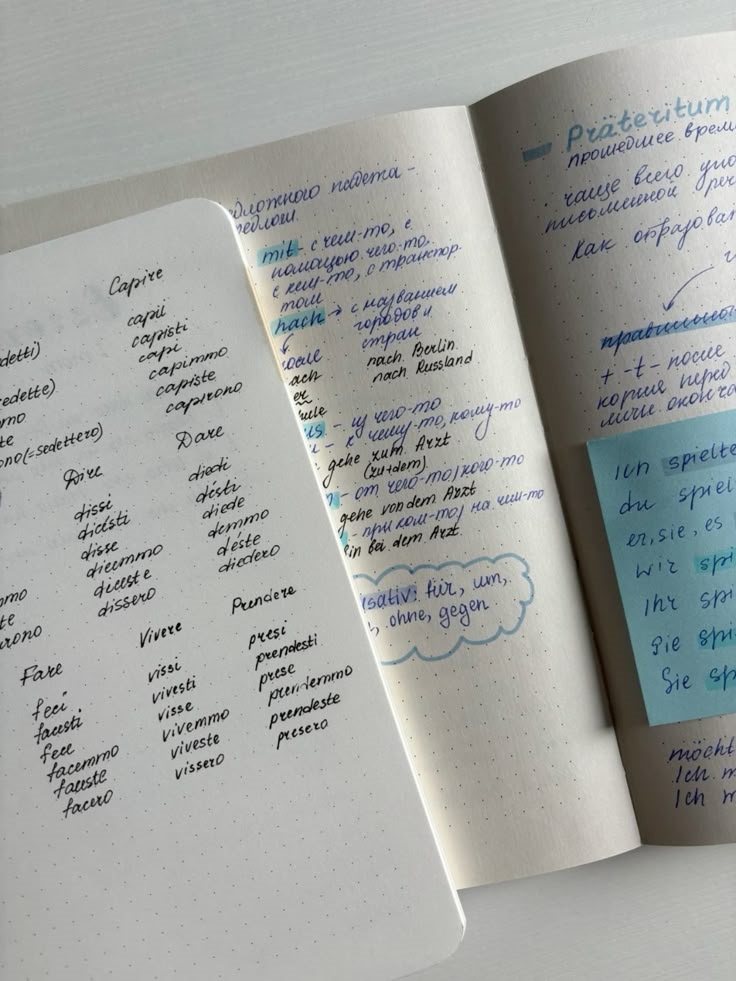 Capire
capii
capisti
capì
capimmo
capiste
capirono
detti)
edette)
mo
te
ono (=sedettero)
Dire
dissi
dicesti
disse
dicemmo
diceste
dissero
Dare
diedi
desti
diede
demmo
deste
diedero
mo
te
rono
Fare
feci
facesti
fece
facemmo
faceste
fecero
Vivere
vissi
vivesti
visse
vivemmo
viveste
vissero
Prendere
presi
prendesti
prese
prendemmo
prendeste
presero
mit - с чем-то, с
помощью чего-то,
с кем-то, с транспор-
том
nach → с названием
городов и
стран
nach Berlin
nach Russland
после
ach
er
hule
us - из чего-то
- к чему-то, кому-то
gehe zum Arzt
(zu+dem)
- от чего-то/кого-то
gehe von dem Arzt
- при ком-то/ на чём-то
in bei dem Arzt.
usativ: für, um,
, ohne, gegen
- Präteritum
прошедшее врем
чаще всего упо
письменной реч
Как образова
правильно
+ -t- после
корня перед
личн. оконча
ich spielte
du spiel
er, sie, es
wir spi
Ihr spi
Sie spi
Sie sp
möcht
Ich m
Ich m